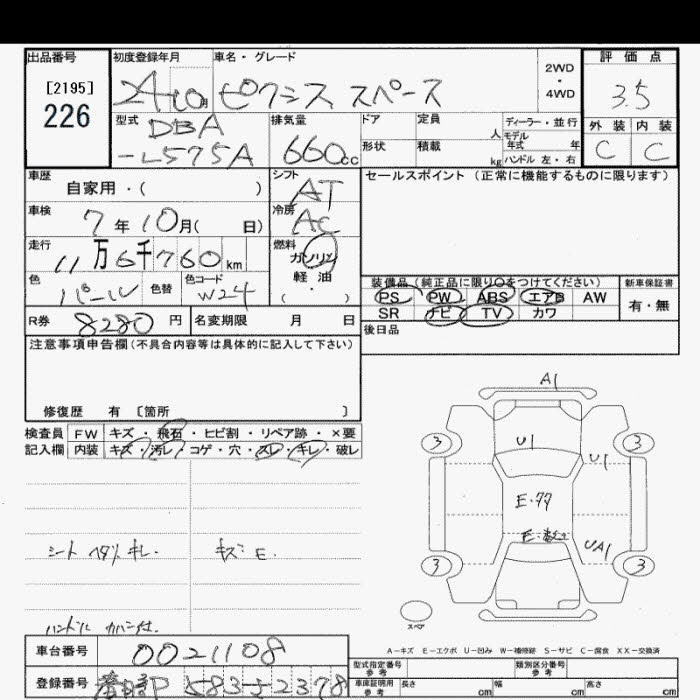 出品番号 初度登録年月 車名・グレード 2WD・4WD 評価点
[2195]
226
24 10月 ピクシス スペース 3.5
型式 DBA 排気量 ドア 定員 人 ディーラー・並行 外装 内装
モデル年式 年
-L575A 660cc 形状 積載 kg ハンドル 左・右 C C
車歴 自家用・( ) シフト AT セールスポイント (正常に機能するものに限ります)
車検 7年10月( 日) 冷房 AC
走行 11万6千760km 燃料 ガソリン
軽・油
( ・ )
色 パール 色替 色コード W24
装備品(純正品に限り○をつけてください) 新車保証書
PS PW ABS エアB AW 有・無
SR ナビ TV カワ
R券 8280円 名変期限 月 日 後日品
注意事項申告欄(不具合内容等は具体的に記入して下さい)
修復歴 有 〔箇所 〕
検査員 FW キズ・飛石・ヒビ割・リペア跡・×要
記入欄 内装 キズ・汚レ・コゲ・穴・スレ・キレ・破レ
A1
3 3
U1 U1
E・77
UA1
3 3
シート ヘタリ キレ. キズ E.
ハンドル カバー付.
スペア
A-キズ E-エクボ U-凹み W-補修跡 S-サビ C-腐食 XX-交換済
車台番号 0021108
登録番号 583 2378
型式指定番号 参考 類別区分番号 参考
車庫証明用 参考 長さ cm 幅 cm 高さ cm